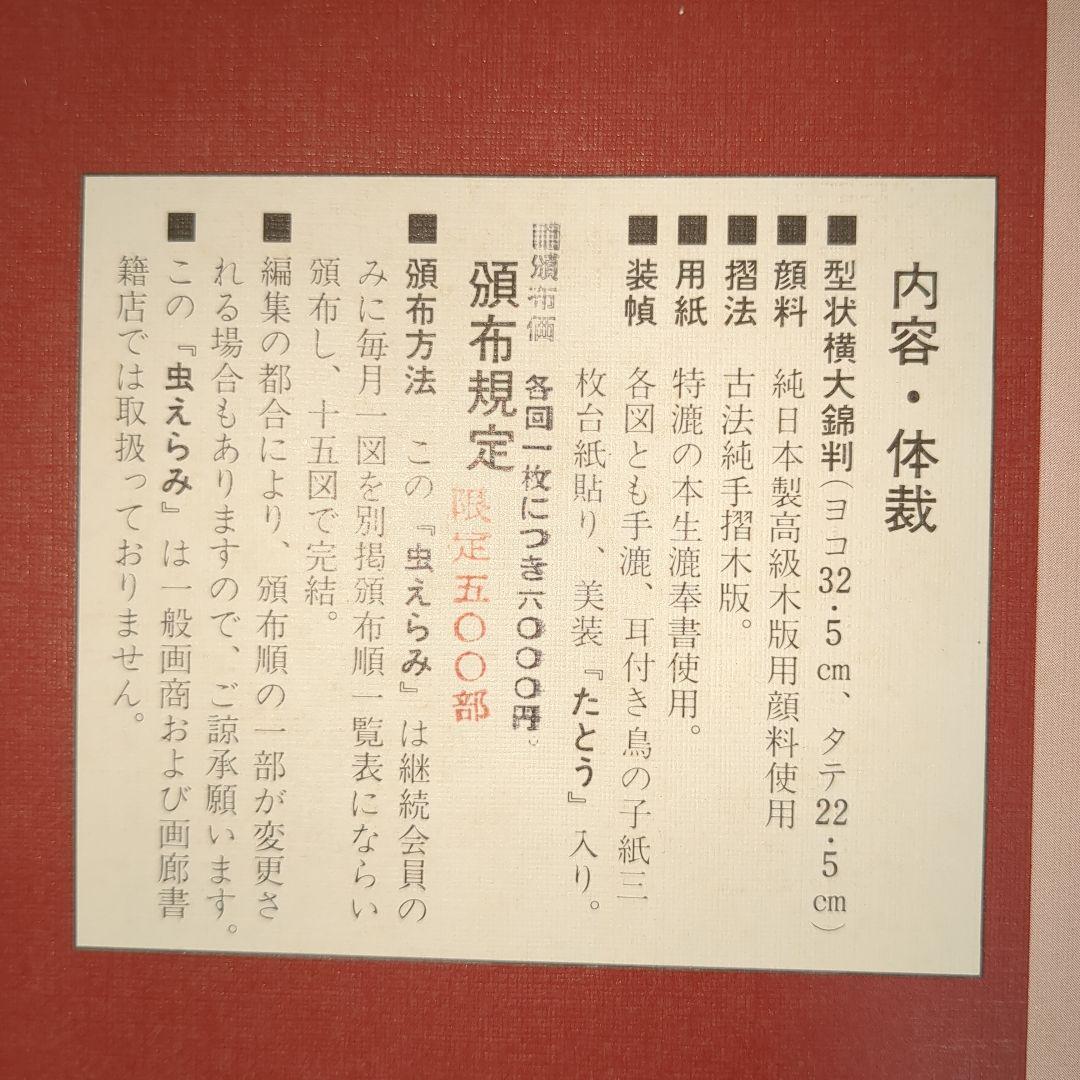 内容・体裁
■型状横大錦判（ヨコ32・5㎝、タテ22・5㎝）
■顔料　純日本製高級木版用顔料使用
■摺法　古法純手摺木版。
■用紙　特漉の本生漉奉書使用。
■装幀　各図とも手漉、耳付き鳥の子紙三
枚台紙貼り、美装『たとう』入り。
■頒布価　各回一枚につき六〇〇〇円。
頒布規定　限定五〇〇部
■頒布方法　この『虫えらみ』は継続会員の
みに毎月一図を別掲頒布順一覧表にならい
頒布し、十五図で完結。
■編集の都合により、頒布順の一部が変更さ
れる場合もありますので、ご諒承願います。
■この『虫えらみ』は一般画商および画廊書
籍店では取扱っておりません。